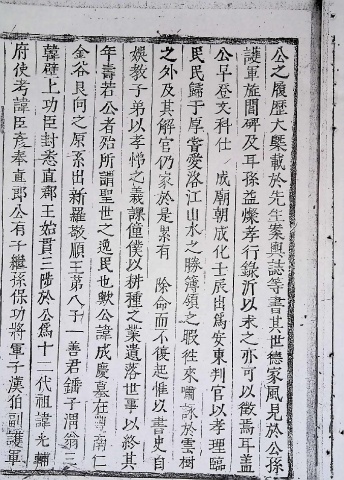 公之履歷大槩載於先生案輿誌等書其世德家風見於公孫
護軍旌閭碑及耳孫益燦孝行錄沂以求之亦可以徵焉耳盖
公早登文科仕 成廟朝成化壬辰出爲安東判官以孝理臨
民民歸于厚嘗愛洛江山水之勝簿領之暇往來嘯詠於雲樹
之外及其解官仍家於是累有 除命而不復起惟以書史自
娛教子弟以孝悌之義課僮僕以耕種之業遺落世事以終其
年壽若公者殆所謂聖世之逸民也歟公諱成慶墓在豊南仁
金谷艮向之原系出新羅敬順王第八子一善君鐇子渭翁三
韓壁上功臣封悉直郡王始貫三陟於公爲十二代祖諱光輔
府使考諱臣彥奉直郎公有子繼孫保功將軍子漢伯副護軍